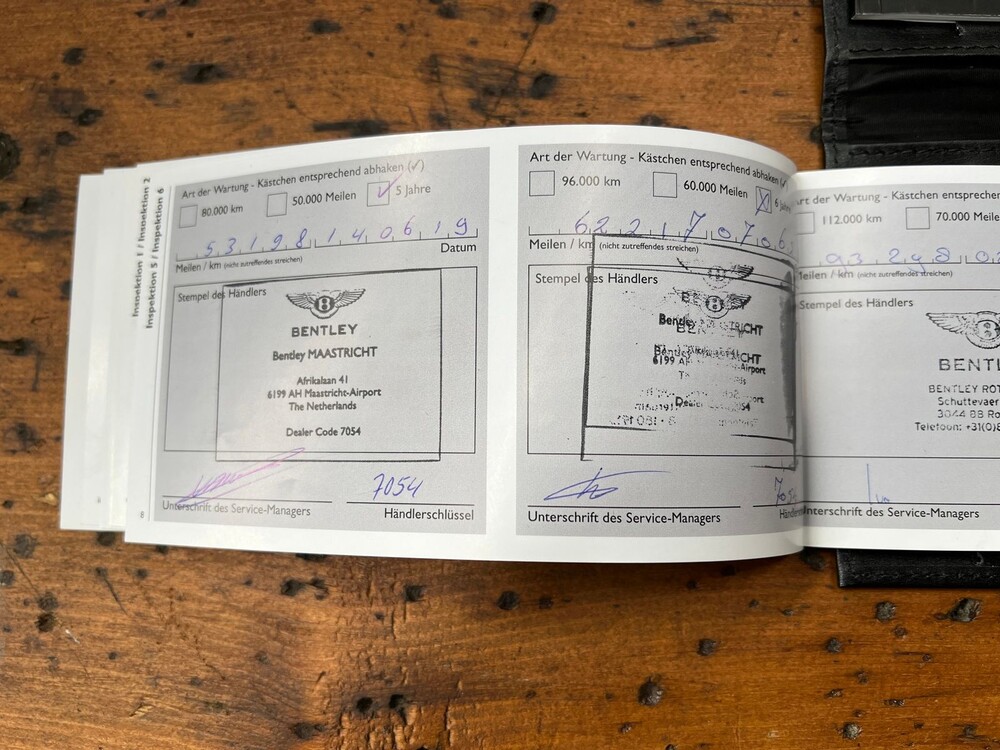 Inspektion 1 / Inspektion 2
Inspektion 5 / Inspektion 6
Art der Wartung - Kästchen entsprechend abhaken (✓)
80.000 km
50.000 Meilen
5 Jahre
53198 140619
Meilen / km (nicht zutreffendes streichen)
Datum
Stempel des Händlers
B
BENTLEY
Bentley MAASTRICHT
Afrikalaan 41
6199 AH Maastricht-Airport
The Netherlands
Dealer Code 7054
7054
Unterschrift des Service-Managers
Händlerschlüssel
Art der Wartung - Kästchen entsprechend abhaken (✓)
96.000 km
60.000 Meilen
6 Jahre
62217 0706
Meilen / km (nicht zutreffendes streichen)
Stempel des Händlers
Unterschrift des Service-Managers
Art der Wartung - Kästchen entsprechen
112.000 km
70.000 Meile
Meilen / km (nicht zutreffendes streichen)
Stempel des Händlers
BENTL
BENTLEY ROT
Schuttevaer
3044 BB Ro
Telefoon: +31(0)
Unterschrift des Service-Managers